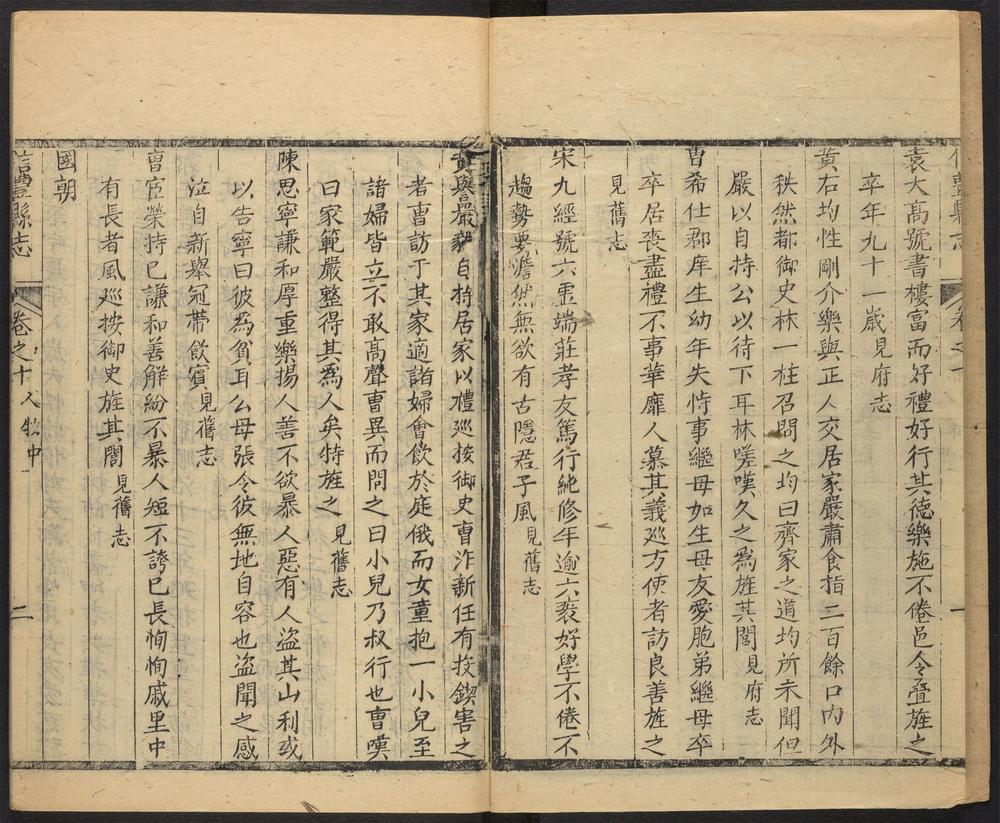 袁大高號書樓富而好禮好行其德樂施不倦邑令叠旌之
卒年九十一歲見府志
黃右均性剛介樂與正人交居家嚴肅食指二百餘口內外
秩然都御史林一柱召問之均曰齊家之道均所未聞但
嚴以自持公以待下耳林嗟嘆久之為旌其閭見府志
曹希仕郡庠生幼年失恃事繼母如生母友愛胞弟繼母卒
卒居喪盡禮不事華靡人慕其義巡方使者訪良善旌之
見舊志
宋九經號六雲端莊孝友篤行純修年逾六袠好學不倦不
趨勢要澹然無欲有古隱君子風見舊志
黃與嚴毅自持居家以禮巡按御史曹泎新任有投鍥害之
者曹訪于其家適諸婦會飲於庭俄而女童抱一小兒至
諸婦皆立不敢高聲曹異而問之曰小兒乃叔行也曹嘆
曰家範嚴整得其為人矣特旌之見舊志
陳思寧謙和厚重樂揚人善不欲暴人惡有人盜其山利或
以告寧曰彼為貧耳公毋張令彼無地自容也盜聞之感
泣自新舉冠帶飲賓見舊志
曹宦榮持已謙和善解紛不暴人短不誇已長恂恂戚里中
有長者風巡按御史旌其閭見舊志
國朝
信豐縣志 卷之十 人物中 二